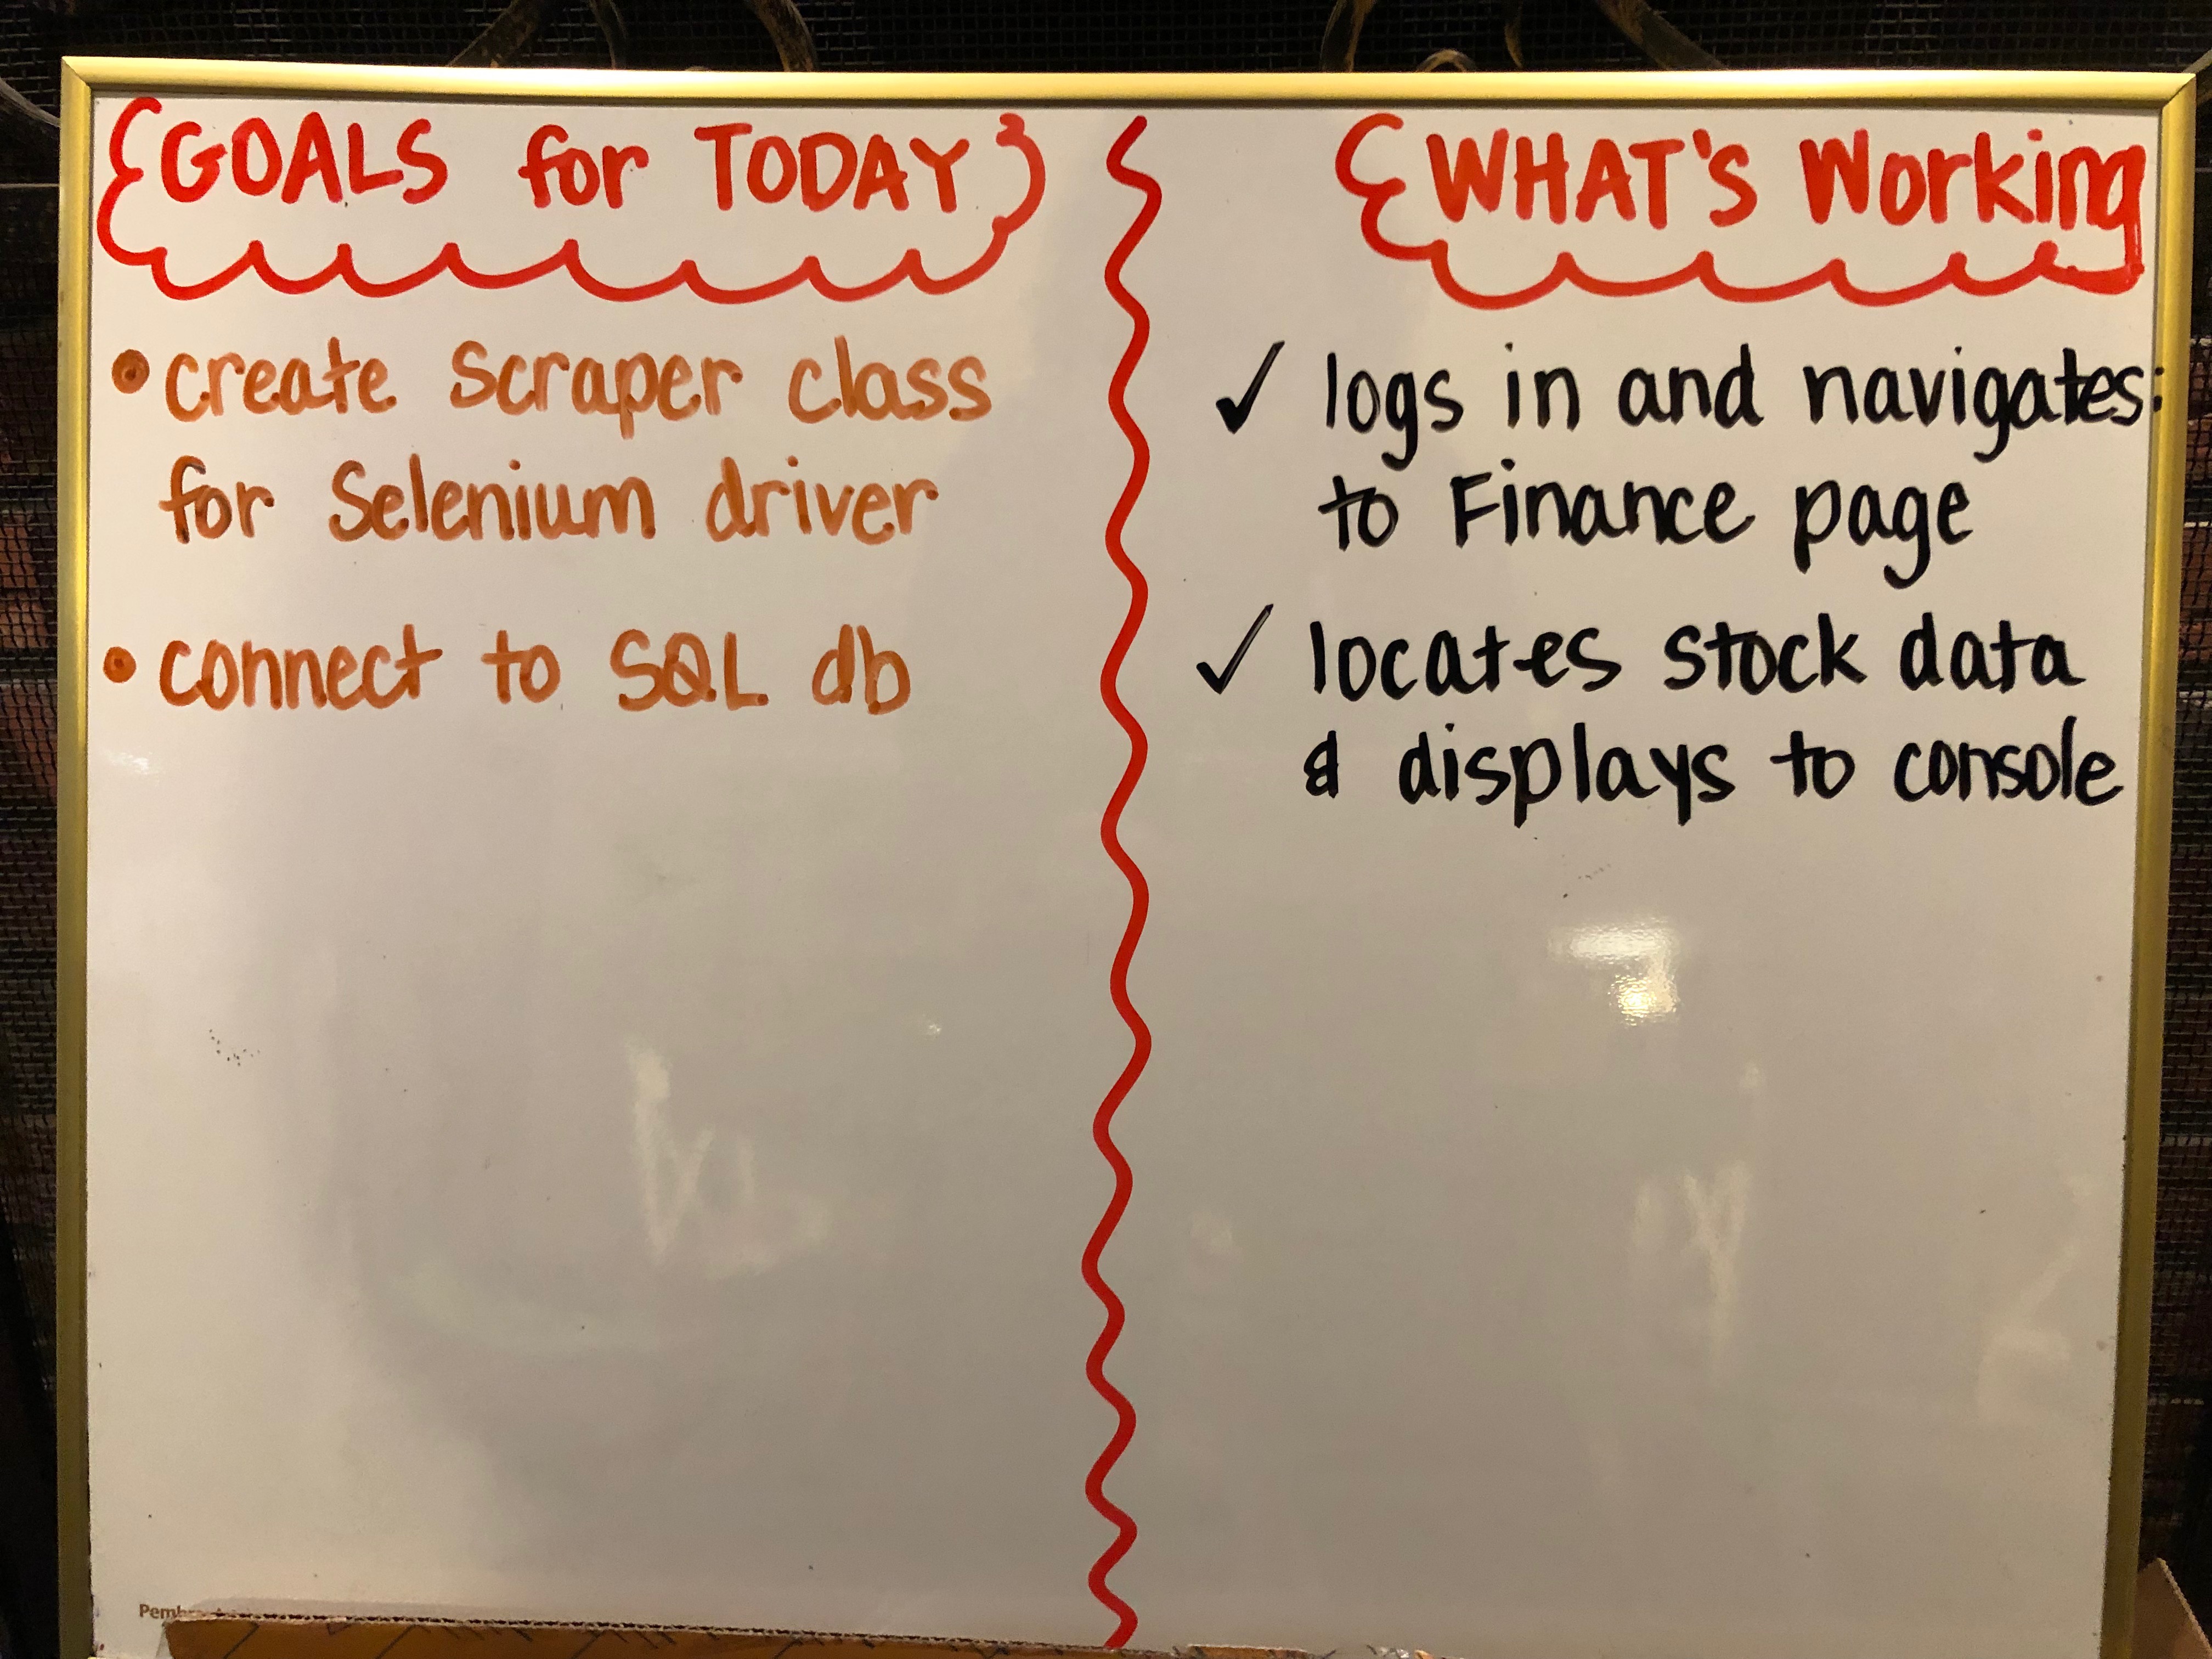 GOALS for TODAY
• create Scraper class
for Selenium driver
• connect to SQL db
WHAT's Working
✓ logs in and navigates:
to Finance page
✓ locates stock data
& displays to console